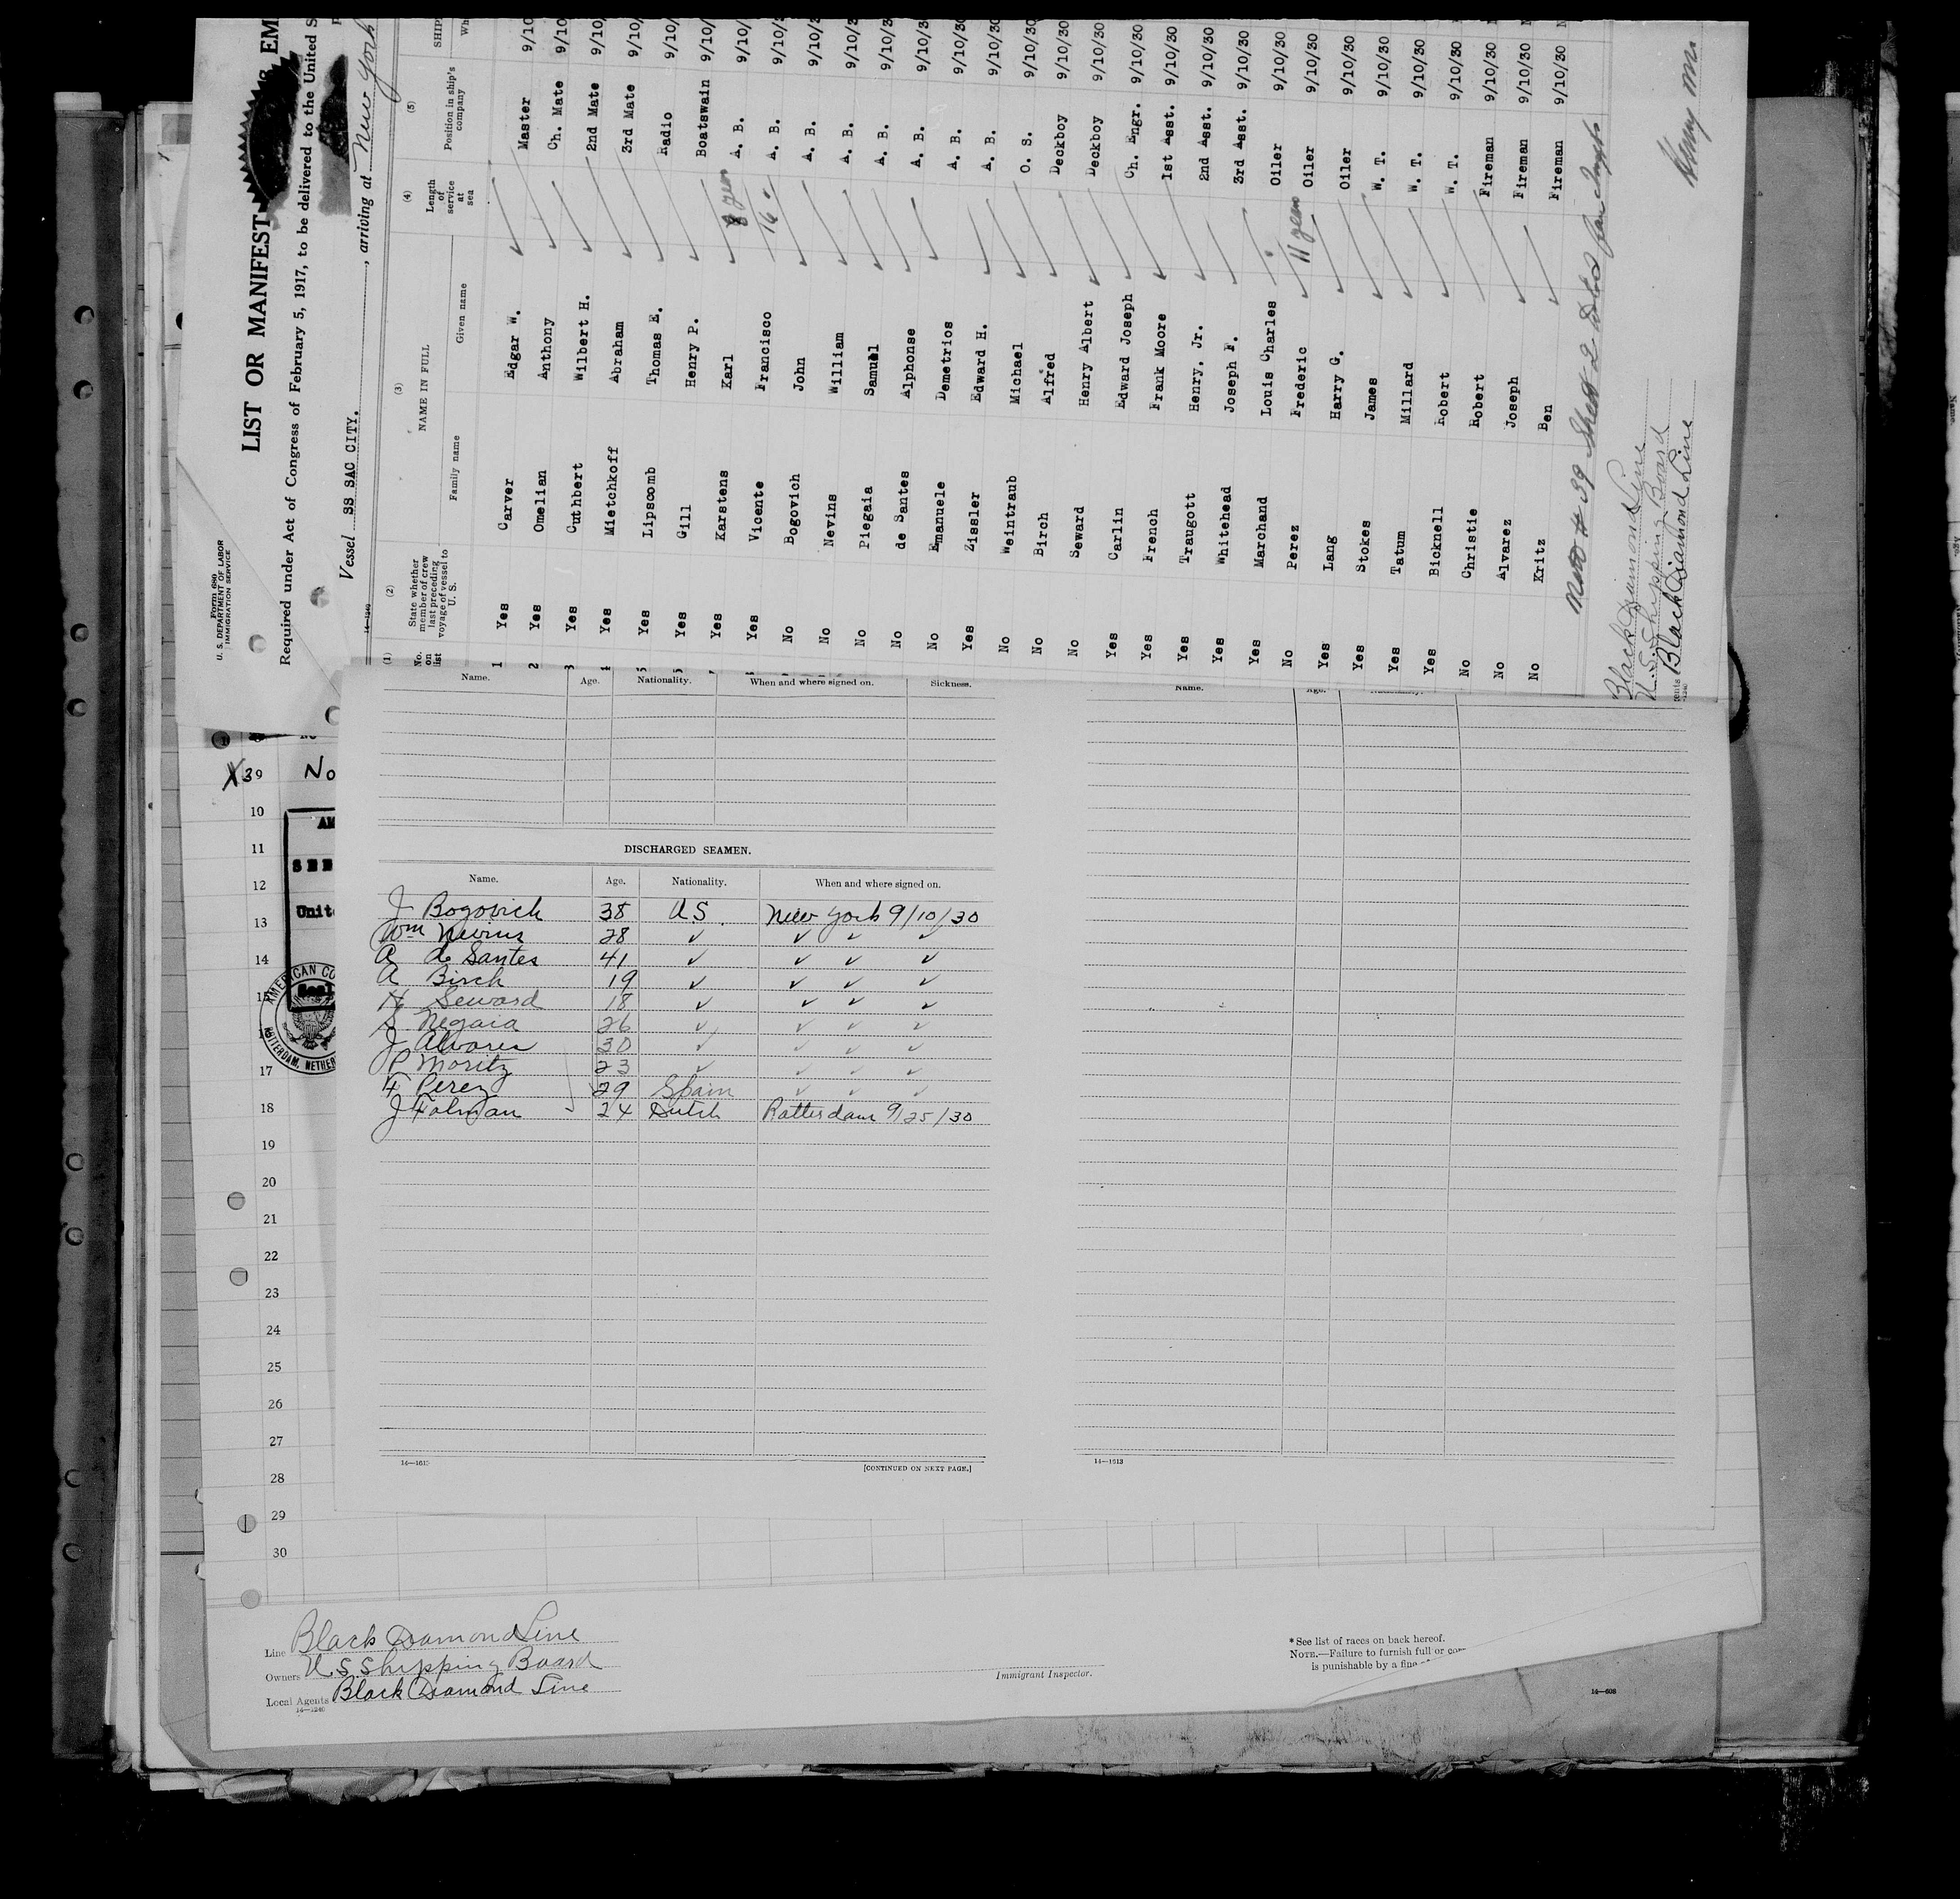 Form 680
U. S. DEPARTMENT OF LABOR
IMMIGRATION SERVICE
LIST OR MANIFEST
EM
Required under Act of Congress of February 5, 1917, to be delivered to the United S
Vessel SS SAC CITY. , arriving at New York
14—1240
(1) (2) (3) (4) (5)
No. on list
State whether member of crew last preceding voyage of vessel to U. S.
NAME IN FULL
Family name Given name
Length of service at sea
Position in ship's company
SHIP
Wh
1 Yes Carver Edgar W. Master 9/10
2 Yes Omelian Anthony Ch. Mate 9/10
3 Yes Cuthbert Wilbert H. 2nd Mate 9/10/
4 Yes Mietchkoff Abraham 3rd Mate 9/10/
5 Yes Lipscomb Thomas E. Radio 9/10/
Yes Gill Henry P. Boatswain 9/10/
Yes Karstens Karl 8 years A. B. 9/10/
Yes Vicente Francisco 16 " A. B. 9/10/
No Bogovich John A. B. 9/10/3
No Nevins William A. B. 9/10/3
No Piegaia Samuel A. B. 9/10/3
No de Santes Alphonse A. B. 9/10/3
No Emanuele Demetrios A. B. 9/10/30
Yes Zissler Edward H. A. B. 9/10/30
No Weintraub Michael O. S. 9/10/30
No Birch Alfred Deckboy 9/10/30
No Seward Henry Albert Deckboy 9/10/30
Yes Carlin Edward Joseph Ch. Engr. 9/10/30
Yes French Frank Moore 1st Asst. 9/10/30
Yes Traugott Henry, Jr. 2nd Asst. 9/10/30
Yes Whitehead Joseph F. 3rd Asst. 9/10/30
Yes Marchand Louis Charles Oiler 9/10/30
No Perez Frederic 11 years Oiler 9/10/30
Yes Lang Harry G. Oiler 9/10/30
Yes Stokes James W. T. 9/10/30
Yes Tatum Millard W. T. 9/10/30
Yes Bicknell Robert W. T. 9/10/30
No Christie Robert Fireman 9/10/30
No Alvarez Joseph Fireman 9/10/30
No Kritz Ben Fireman 9/10/30
# 39 Sheet 2
Black Diamond Line
U. S. Shipping Board
Black Diamond Line
Henry
Name. Age. Nationality. When and where signed on. Sickness.
Name. Age. Nationality.
DISCHARGED SEAMEN.
Name. Age. Nationality. When and where signed on.
J Bogovich 38 US New York 9/10/30
Wm Nevins 28 ✓ ✓ ✓ ✓
A de Santes 41 ✓ ✓ ✓ ✓
A Birch 19 ✓ ✓ ✓ ✓
H Seward 18 ✓ ✓ ✓ ✓
S Negaia 26 ✓ ✓ ✓ ✓
J Alvares 30 ✓ ✓ ✓ ✓
P Moritz 23 ✓ ✓ ✓ ✓
F Perez 29 Spain ✓ ✓ ✓
J 24 Dutch Rotterdam 9/25/30
14—1613
[CONTINUED ON NEXT PAGE.]
14—1613
X39 No
10
11
12
13
14
15
17
18
19
20
21
22
23
24
25
26
27
28
29
30
AM
SEE
Unit
Seal
AMERICAN CO
ROTTERDAM, NETHER
Line Black Diamond Line
Owners U S Shipping Board
Local Agents Black Diamond Line
14—1240
Immigrant Inspector.
*See list of races on back hereof.
NOTE.—Failure to furnish full or cor
is punishable by a fine
14—608